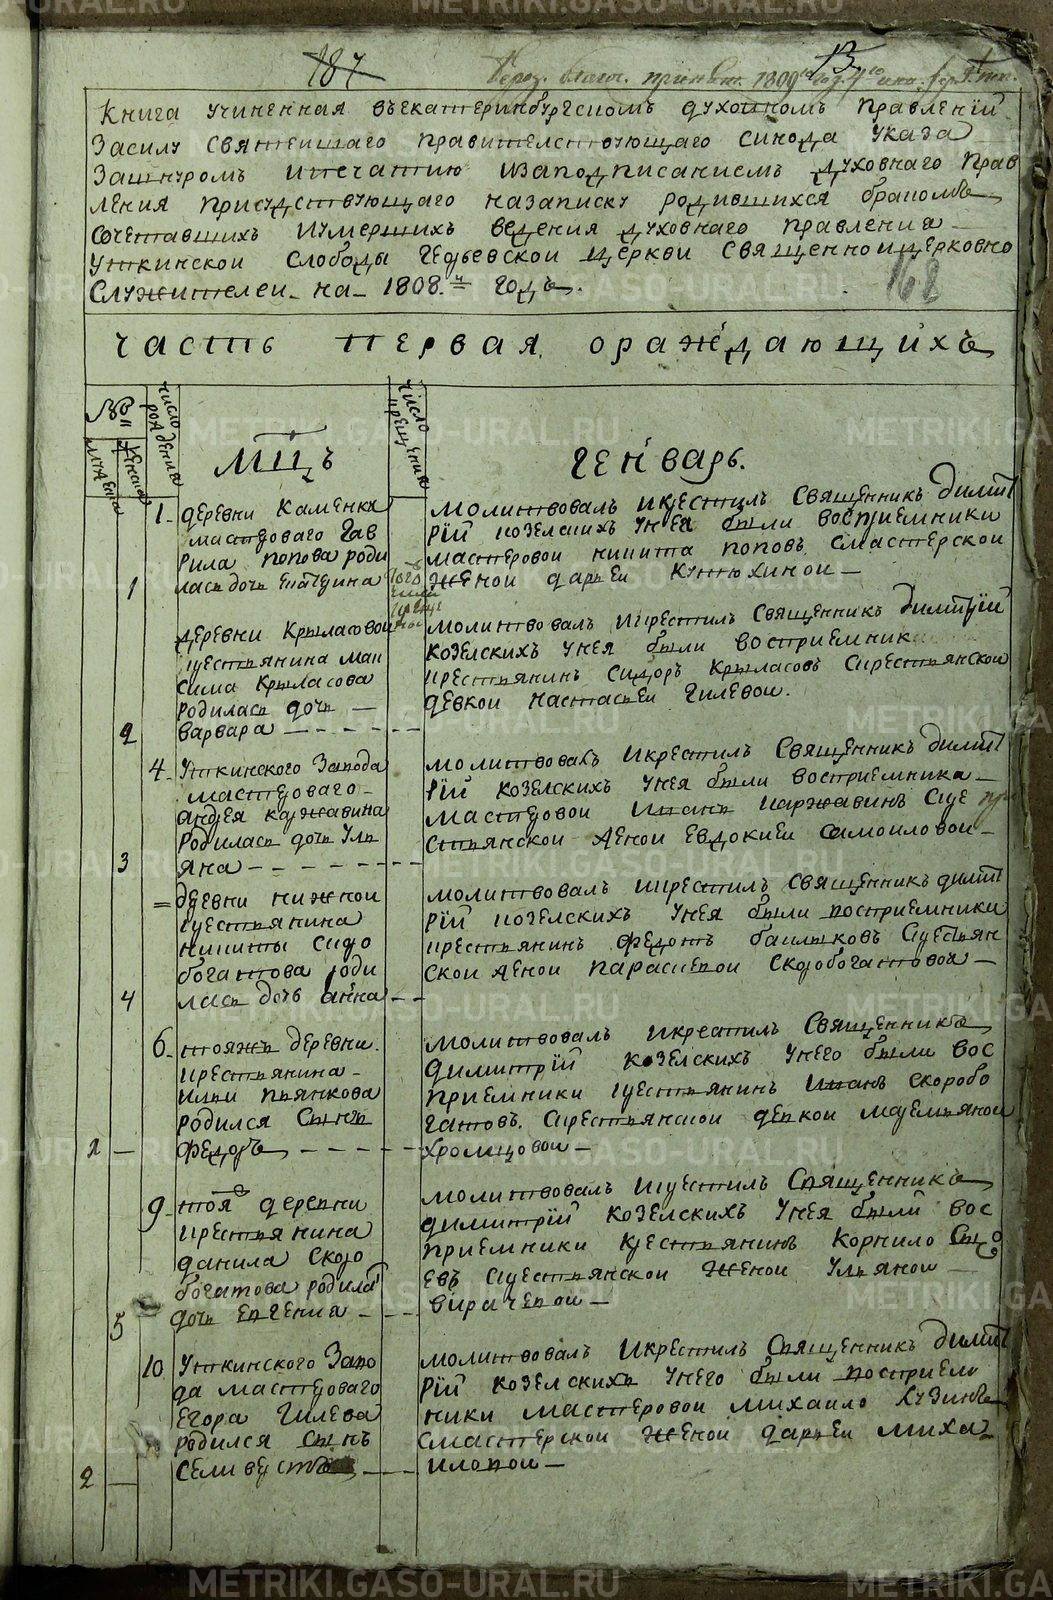 187
13
Книга учиненная въекатеринбургскомъ духовномъ правлении
Засилу святеишаго правителствующаго синода указа
Зашнуромъ ипечатию изаподписаниемъ духовнаго прав
ления присудствующаго назаписку родившихся бракомъ
сочетавшихъ иумершихъ ведения духовнаго правления
уткинскои слободы геѡргиевскои церкви священноицерковно
служителеи на 1808.й годъ.
168
часть первая ораждающихъ
число рождения
число крещения
мцъ
генварь.
1. деревни каменки
мастероваго гав
рила попова роди
лась дочь екатерина
1
молитвовалъ икрестилъ священникъ димит
рїй козелскихъ унея были восприемники
мастеровои никита поповъ смастерскои
женои дарьеи кутюхинои
деревни крыласовои
крестьянина мак
сима крыласова
родилась дочь
варвара
2
молитвовалъ икрестилъ священникъ димитрїй
козелскихъ унея были восприемник
крестьянинъ сидоръ крыласовъ скрестьянскои
девкои настасьеи гилевои.
4. уткинского завода
мастероваго
андрея каржавина
родилась дочь уль
яна
3
молитвовалъ икрестилъ священникъ димит
рїй козелскихъ унея были восприемника
мастеровои иванъ каржавинъ скре
стьянскои женои евдокиеи самоиловои
= деревни нижнои
крестьянина
никиты скоро
богатова роди
лась дочь анна
4
молитвовалъ икрестилъ священникъ димит
рїй козелскихъ унея были восприемники
крестьянинъ федотъ скрестьян
скои женои парасквои скоробогатовои
6. тояжъ деревни.
крестьянина
ильи пьянкова
родился сынъ
федоръ
1
молитвовалъ икрестилъ священникъ
димитрїй козелскихъ унего были вос
приемники крестьянинъ иванъ скоробо
гатовъ. скрестьянскои девкои маремьянои
хромцовои
9. тоя деревни
крестьянина
данила скоро
богатова родилас
дочь евгения
5
молитвовалъ икрестилъ священникъ
димитрїй козелскихъ унея были вос
приемники крестьянинъ корнило
евъ скрестьянскои женои ульянои
вирачевои
10. уткинского заво
да мастероваго
егора гилева
родился сынъ
селивестръ
2
молитвовалъ икрестилъ священникъ димит
рїй козелскихъ унего были восприем
ники мастеровои михаило кузинъ
смастерскои женои дарьеи миха
иловои
METRIKI.GASO-URAL.RU